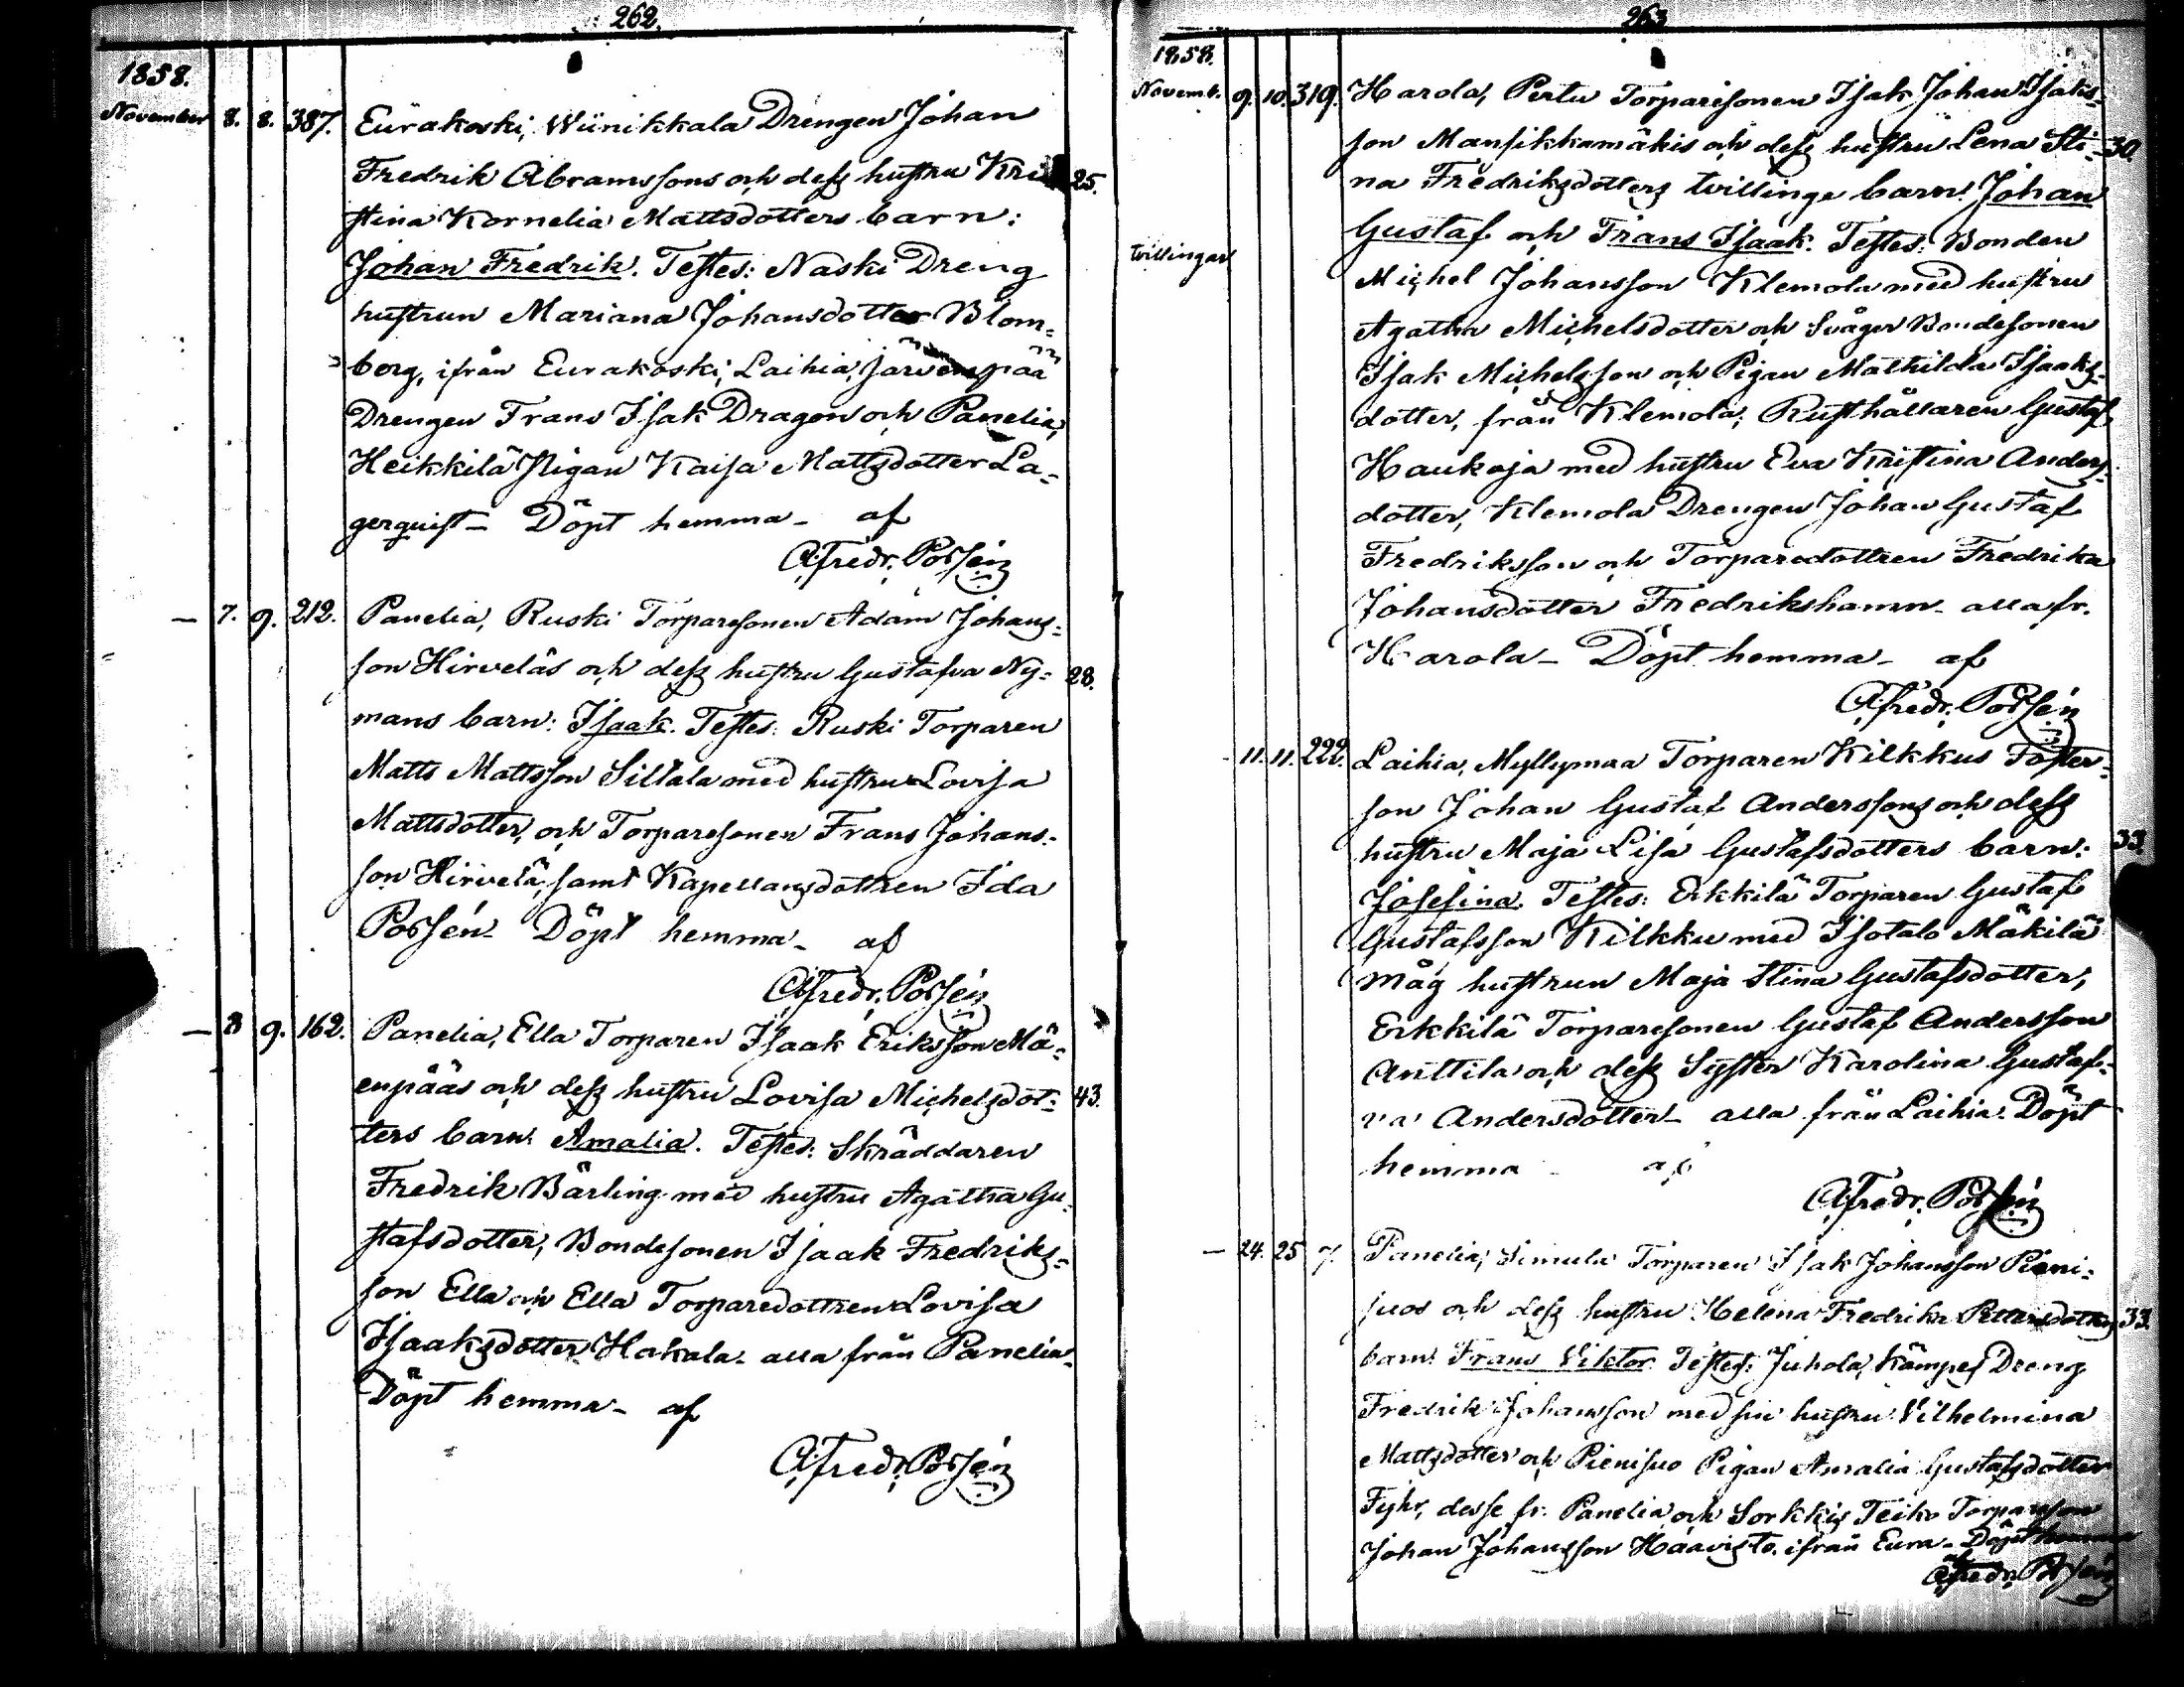 262.
1858.
November 8. 8. 387. Eurakoski, Wiinikkala Drengen Johan
Fredrik Abramssons och dess hustru Kri 25.
stina Kornelia Mattsdotters barn:
Johan Fredrik. Testes: Naski Dreng
hustrun Mariana Johansdotter Blom=
berg, ifrån Eurakoski, Laihia, Järvenpää
Drengen Frans Isak Dragon och Panelia,
Heikkilä Pigan Kaisa Mattsdotter La=
gerquist – Döpt hemma – af
A. Fredr. Porsén
– 7. 9. 212. Panelia, Ruski Torparesonen Adam Johans=
son Hirveläs och dess hustru Gustafva Ny= 28.
mans barn: Isaak. Testes: Ruski Torparen
Matts Mattsson Sillala med hustru Lovisa
Mattsdotter, och Torparesonen Frans Johans=
son Hirvelä, samt Kapellansdottren Ida
Porsén – Döpt hemma – af
A. Fredr. Porsén
– 8 9. 162. Panelia, Ella Torparen Isaak Eriksson Mä=
enpääs och dess hustru Lovisa Michelsdot= 43.
ters barn: Amalia. Testes: Skräddaren
Fredrik Bärling med hustru Agatha Gu=
stafsdotter, Bondesonen Isaak Fredriks=
son Ella och Ella Torparedottren Lovisa
Isaaksdotter Hakala – alla från Panelia –
Döpt hemma – af
A. Fredr. Porsén
263
1858.
Novemb. 9. 10. 319. Harola, Pertu Torparesonen Isak Johan Isaks=
son Mansikkamäkis och dess hustru Lena Sti= 30.
na Fredriksdotters tvillinge barn: Johan
tvillingar Gustaf och Frans Isaak. Testes: Bonden
Michel Johansson Klemola med hustru
Agatha Michelsdotter och Svåger Bondesonen
Isak Michelsson och Pigan Mathilda Isaaks=
dotter, från Klemola; Rusthållaren Gustaf
Haukoja med hustru Eva Kristina Anders=
dotter, Klemola Drengen Johan Gustaf
Fredriksson och Torparedottren Fredrika
Johansdotter Fredrikshamn – alla fr.
Harola – Döpt hemma – af
A. Fredr. Porsén
- 11. 11. 222. Laihia, Myllymaa Torparen Kilkkus Foster=
son Johan Gustaf Anderssons och dess
hustru Maja Lisa Gustafsdotters barn: 33.
Josefina. Testes: Erkkilä Torparen Gustaf
Gustafsson Kilkku med Isotalo Mäkilä
måg hustrun Maja Stina Gustafsdotter,
Erkkilä Torparesonen Gustaf Andersson
Anttila och dess Syster Karolina Gustaf=
va Andersdotter – alla från Laihia. Döpt
hemma – af
A. Fredr. Porsén
– 24. 25 7. Panelia, Simula Torparen Isak Johansson Pieni=
suos och dess hustru Helena Fredrika Pettersdotters 33.
barn: Frans Viktor. Testes: Juhola, Kämpes Dreng
Fredrik Johansson med sin hustru Vilhelmina
Mattsdotter och Pienisuo Pigan Amalia Gustafsdotter
Fyhr, desse fr. Panelia och Sorkkis Teiko Torpareson
Johan Johansson Haavisto, ifrån Eura – Döpt hemma
af A. Fredr. Porsén